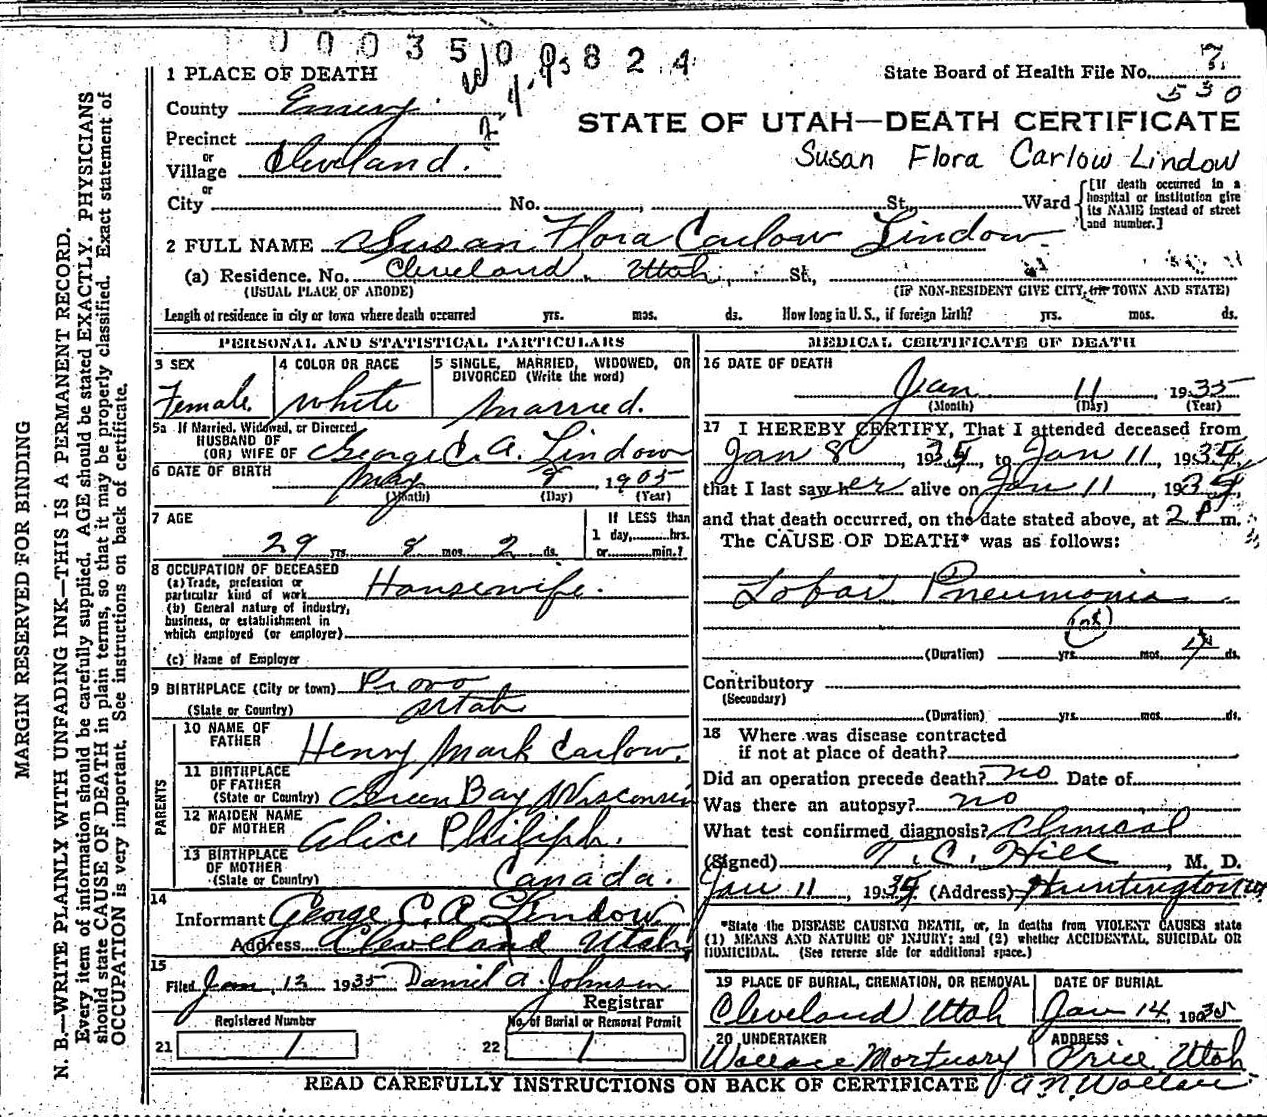 0 0 0 3 5 0 0 8 2 4
1 PLACE OF DEATH
State Board of Health File No. 7
530
County Emery.
Precinct
STATE OF UTAH—DEATH CERTIFICATE
or
Village Cleveland.
Susan Flora Carlow Lindow
or
City No. , St., Ward
[If death occurred in a
hospital or institution give
its NAME instead of street
and number.]
2 FULL NAME Susan Flora Carlow Lindow
(a) Residence. No. Cleveland, Utah, St.,
(USUAL PLACE OF ABODE) (IF NON-RESIDENT GIVE CITY, OR TOWN AND STATE)
Length of residence in city or town where death occurred yrs. mos. ds. How long in U. S., if foreign birth? yrs. mos. ds.
PERSONAL AND STATISTICAL PARTICULARS
3 SEX
Female.
4 COLOR OR RACE
White
5 SINGLE, MARRIED, WIDOWED, OR
DIVORCED (Write the word)
Married.
5a If Married, Widowed, or Divorced
HUSBAND OF
(OR) WIFE OF George C. A. Lindow
6 DATE OF BIRTH May 9, 1905
(Month) (Day) (Year)
7 AGE
29 yrs. 8 mos. 2 ds.
If LESS than
1 day, hrs.
or min.?
8 OCCUPATION OF DECEASED
(a) Trade, profession or
particular kind of work Housewife.
(b) General nature of industry,
business, or establishment in
which employed (or employer)
(c) Name of Employer
9 BIRTHPLACE (City or town) Provo
(State or Country) Utah
PARENTS
10 NAME OF
FATHER Henry Mark Carlow.
11 BIRTHPLACE
OF FATHER
(State or Country) Green Bay Wisconsin
12 MAIDEN NAME
OF MOTHER Alice Philiph.
13 BIRTHPLACE
OF MOTHER
(State or Country) Canada.
14
Informant George C. A. Lindow
Address Cleveland Utah
15
Filed Jan 12 1935 Daniel A. Johnson
Registrar
Registered Number
21 1
No. of Burial or Removal Permit
22 1
MEDICAL CERTIFICATE OF DEATH
16 DATE OF DEATH
Jan 11, 1935
(Month) (Day) (Year)
17 I HEREBY CERTIFY, That I attended deceased from
Jan 8, 1935, to Jan 11, 1935,
that I last saw her alive on Jan 11, 1935,
and that death occurred, on the date stated above, at 2 P m.
The CAUSE OF DEATH* was as follows:
Lobar Pneumonia
(108)
(Duration) yrs. mos. 4 ds.
Contributory
(Secondary)
(Duration) yrs. mos. ds.
18 Where was disease contracted
if not at place of death?
Did an operation precede death? no Date of
Was there an autopsy? no
What test confirmed diagnosis? Clinical
(Signed) T. C. Hill, M. D.
Jan 11, 1935 (Address) Huntington
*State the DISEASE CAUSING DEATH, or, in deaths from VIOLENT CAUSES state
(1) MEANS AND NATURE OF INJURY; and (2) whether ACCIDENTAL, SUICIDAL OR
HOMICIDAL. (See reverse side for additional space.)
19 PLACE OF BURIAL, CREMATION, OR REMOVAL
Cleveland Utah
DATE OF BURIAL
Jan 14, 1935
20 UNDERTAKER
Wallace Mortuary
ADDRESS
Price, Utah
READ CAREFULLY INSTRUCTIONS ON BACK OF CERTIFICATE A. N. Wallace
MARGIN RESERVED FOR BINDING
N. B.—WRITE PLAINLY WITH UNFADING INK—THIS IS A PERMANENT RECORD.
Every item of information should be carefully supplied. AGE should be stated EXACTLY. PHYSICIANS
should state CAUSE OF DEATH in plain terms, so that it may be properly classified. Exact statement of
OCCUPATION is very important. See instructions on back of certificate.